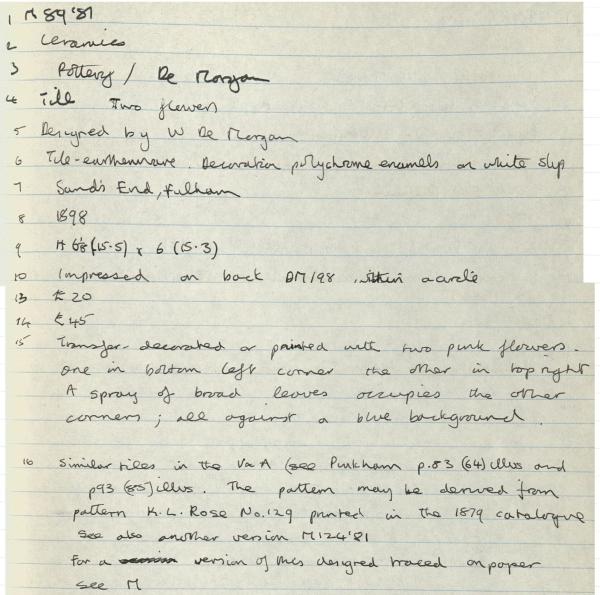 1 M 89'81
2 Ceramics
3 Pottery / De Morgan
4 Tile Two flowers
5 Designed by W De Morgan
6 Tile-earthenware. Decoration polychrome enamels on white slip
7 Sands End, Fulham
8 1898
9 H 6⅛ (15.5) x 6 (15.3)
10 Impressed on back DM/98 within a circle
13 £20
14 £45
15 Transfer-decorated or painted with two pink flowers.
one in bottom left corner the other in top right
A spray of broad leaves occupies the other
corners; all against a blue background.
16 Similar tiles in the V&A (see Pinkham p.83 (64) illus and
p93 (85) illus. The pattern may be derived from
pattern K.L. Rose No.129 printed in the 1879 catalogue
See also another version M124'81
For a version of this designed traced on paper
see M